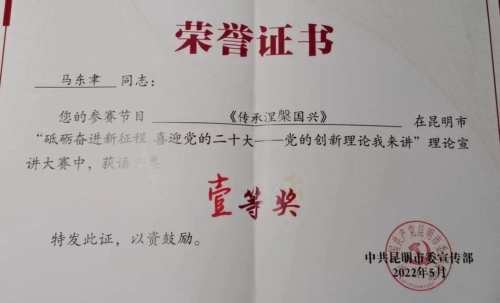 荣誉证书
马东聿 同志：
您的参赛节目 《传承涅槃国兴》 在昆明市
“砥砺奋进新征程 喜迎党的二十大——党的创新理论我来讲”理论宣
讲大赛中，获语
壹等奖
特发此证，以资鼓励。
中共昆明市委宣传部
2022年5月